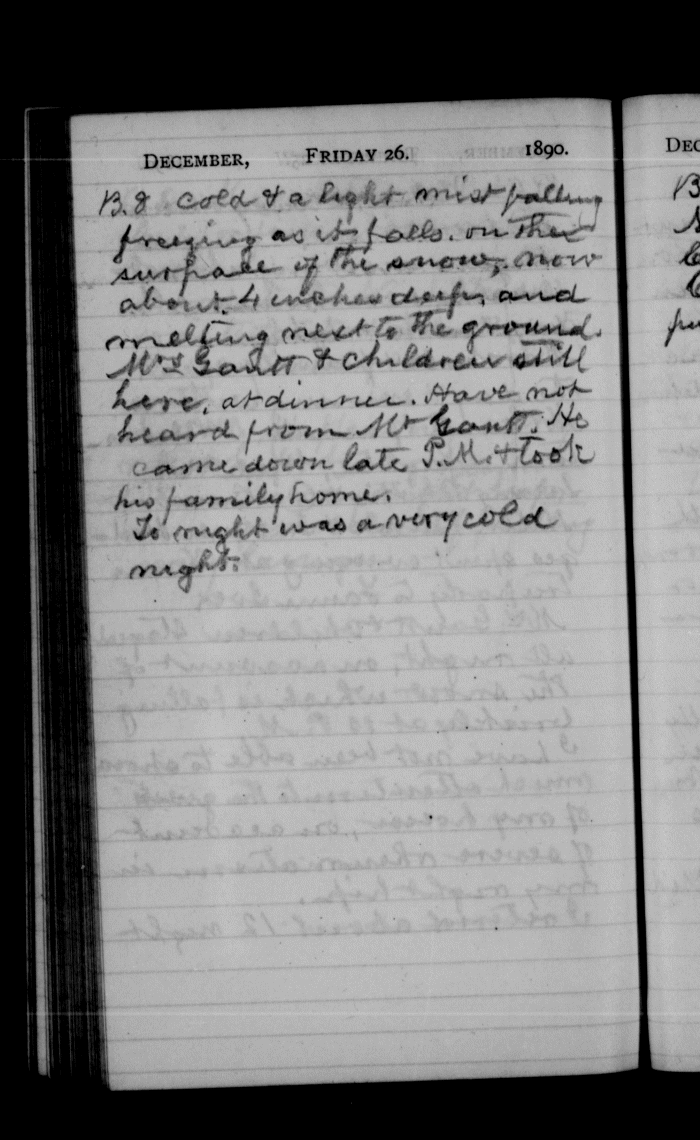 DECEMBER, FRIDAY 26. 1890.
B. 8 cold & a light mist falling
freezing as it falls. on the
surface of the snow, now
about 4 inches deep, and
melting next to the ground.
Mrs Gantt & children still
here, at dinner. Have not
heard from Mr Gantt. He
came down late P.M. & took
his family home.
To night was a very cold
night.
DEC